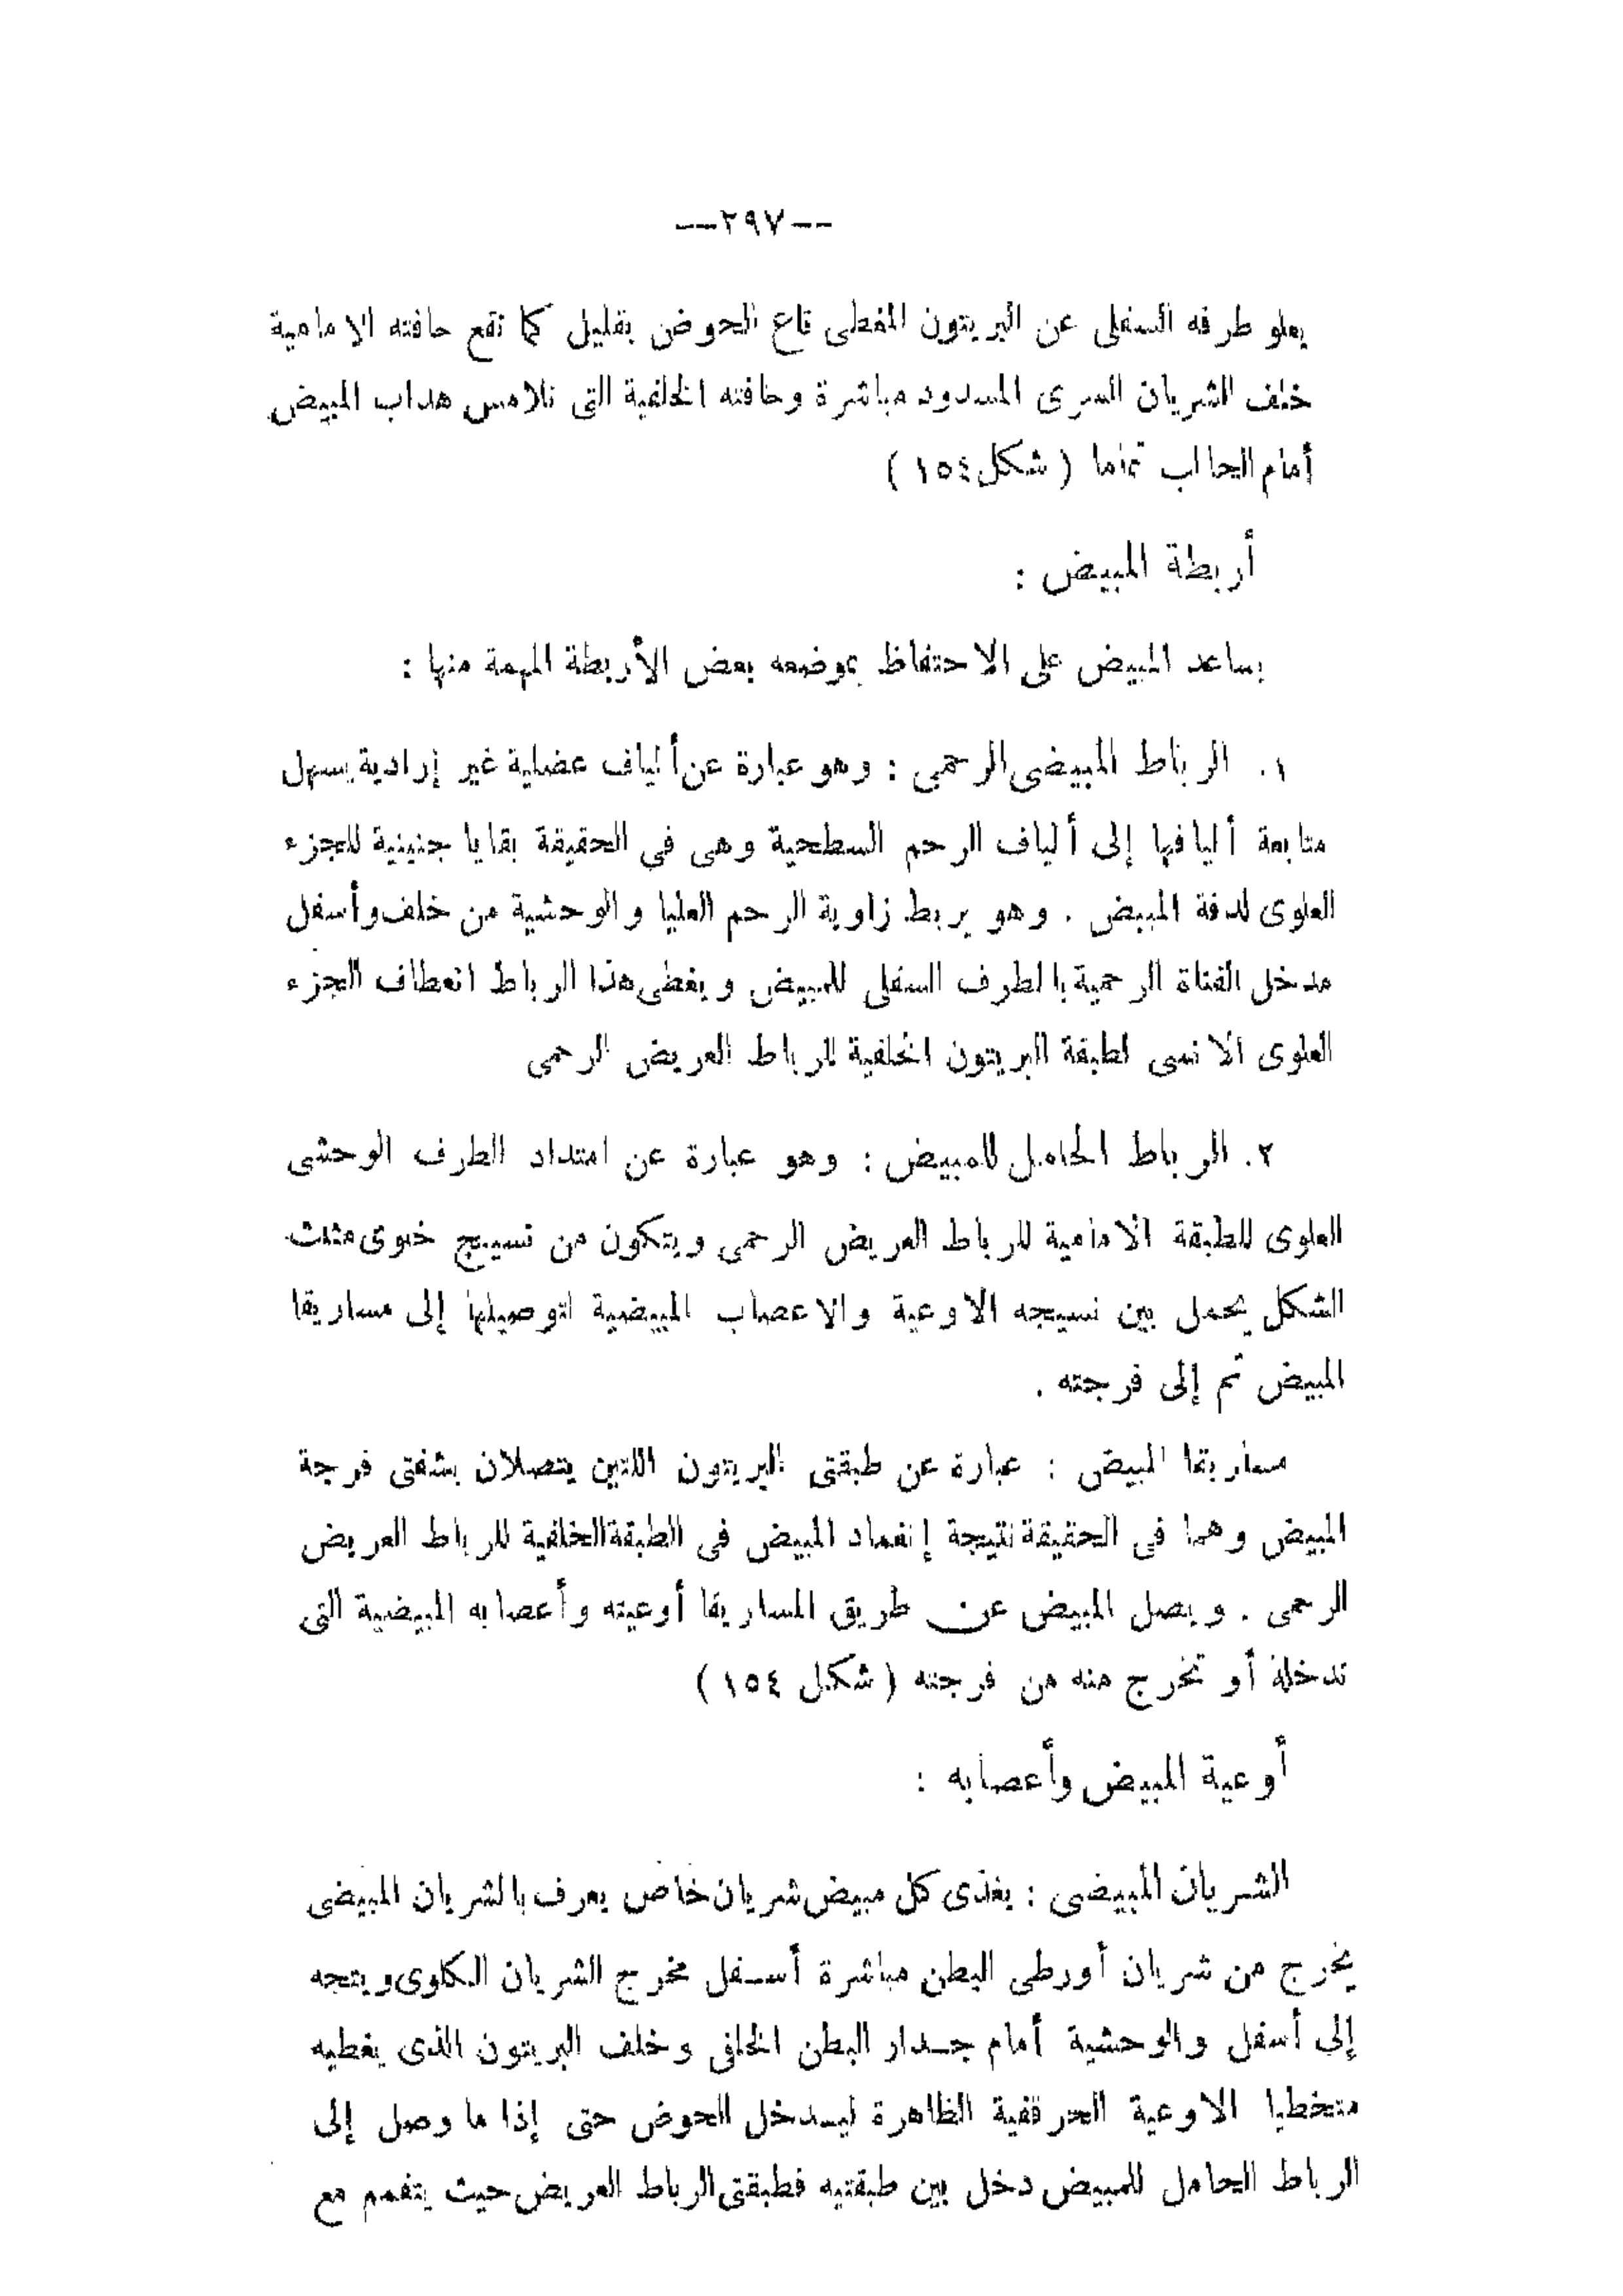 --٢٩٧--
يعلو طرفه السفلى عن البريتون المغطى قاع الحوض بقليل كما تقع حافته الامامية
خلف الشريان السرى المسدود مباشرة وحافته الخلفية التى تلامس هداب المبيض
أمام الحالب تماما ( شكل ١٥٤ )
أربطة المبيض :
يساعد المبيض على الاحتفاظ بموضعه بعض الأربطة المهمة منها :
١. الرباط المبيضى الرحمى : وهو عبارة عن ألياف عضلية غير إرادية يسهل
متابعة أليافها إلى ألياف الرحم السطحية وهى في الحقيقة بقايا جنينية للجزء
العلوى لدفة المبيض . وهو يربط زاوية الرحم العليا والوحشية من خلف وأسفل
مدخل القناة الرحمية بالطرف السفلى للمبيض ويغطى هذا الرباط انعطاف الجزء
العلوى الانسى لطبقة البريتون الخلفية للرباط العريض الرحمى
٢. الرباط الحامل للمبيض : وهو عبارة عن امتداد الطرف الوحشى
العلوى للطبقة الامامية للرباط العريض الرحمى ويتكون من نسيج خلوى مثلث
الشكل يحمل بين نسيجه الاوعية والاعصاب المبيضية لتوصيلها إلى مساريقا
المبيض ثم إلى فرجته .
مساريقا المبيض : عبارة عن طبقتى البريتون اللتين يتصلان بشفتى فرجة
المبيض وهما فى الحقيقة نتيجة إنغماد المبيض فى الطبقة الخلفية للرباط العريض
الرحمى . ويصل المبيض عن طريق المساريقا أوعيته وأعصابه المبيضية التى
تدخله أو تخرج منه من فرجته ( شكل ١٥٤ )
أوعية المبيض وأعصابه :
الشريان المبيضى : يغذى كل مبيض شريان خاص يعرف بالشريان المبيضى
يخرج من شريان أورطى البطن مباشرة أسفل مخرج الشريان الكلوى ويتجه
إلى أسفل والوحشية أمام جدار البطن الخلفى وخلف البريتون الذى يغطيه
متخطيا الاوعية الحرقفية الظاهرة ليدخل الحوض حتى إذا ما وصل إلى
الرباط الحامل للمبيض دخل بين طبقتيه فطبقتى الرباط العريض حيث يتفمم مع